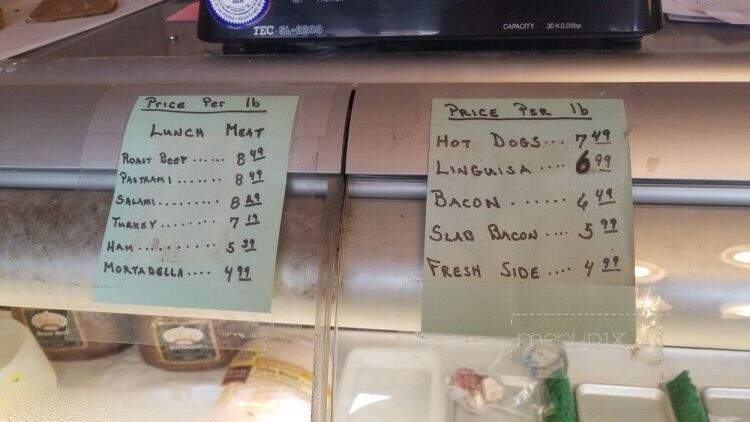 TEC SL-2200
CAPACITY 30 x 0.01 lbs
Price Per lb
Lunch Meat
Roast Beef...... 8 49
Pastrami....... 8 49
Salami......... 8 29
Turkey....... 7 19
Ham.......... 5 39
Mortadella.... 4 99
Price Per lb
Hot Dogs... 7 49
Linguisa .... 6 99
Bacon...... 6 49
Slab Bacon.... 5 99
Fresh Side.... 4 99
menupix